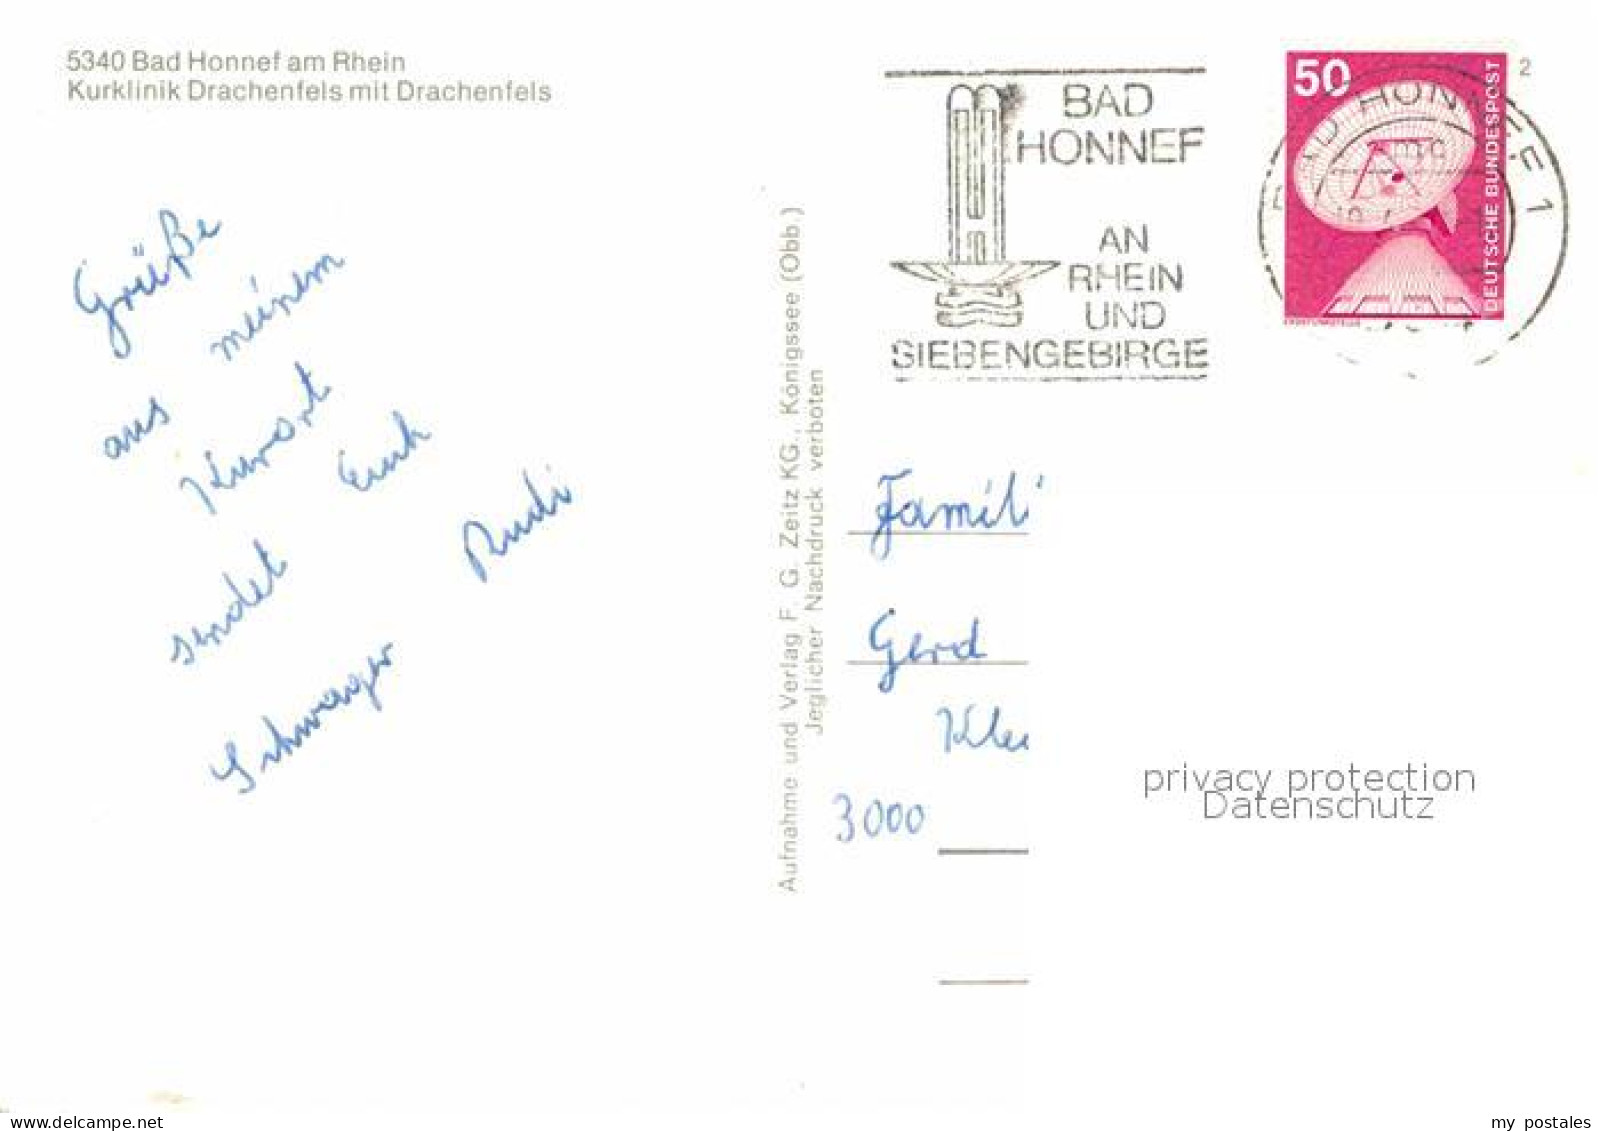 5340 Bad Honnef am Rhein
Kurklinik Drachenfels mit Drachenfels
Grüße
aus meinem
Kurort
sendet Euch
Schwager Rudi
Aufnahme und Verlag F. G. Zeitz KG., Königssee (Obb.)
Jeglicher Nachdruck verboten
BAD
HONNEF
AN
RHEIN
UND
SIEBENGEBIRGE
50
DEUTSCHE BUNDESPOST
BAD HONNEF 1
2
Famili
Gerd
Kle
3000
privacy protection
Datenschutz
www.delcampe.net
my_postales